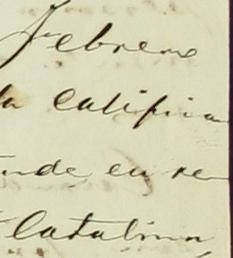 Febrero
la califica
ende en re
Catalina